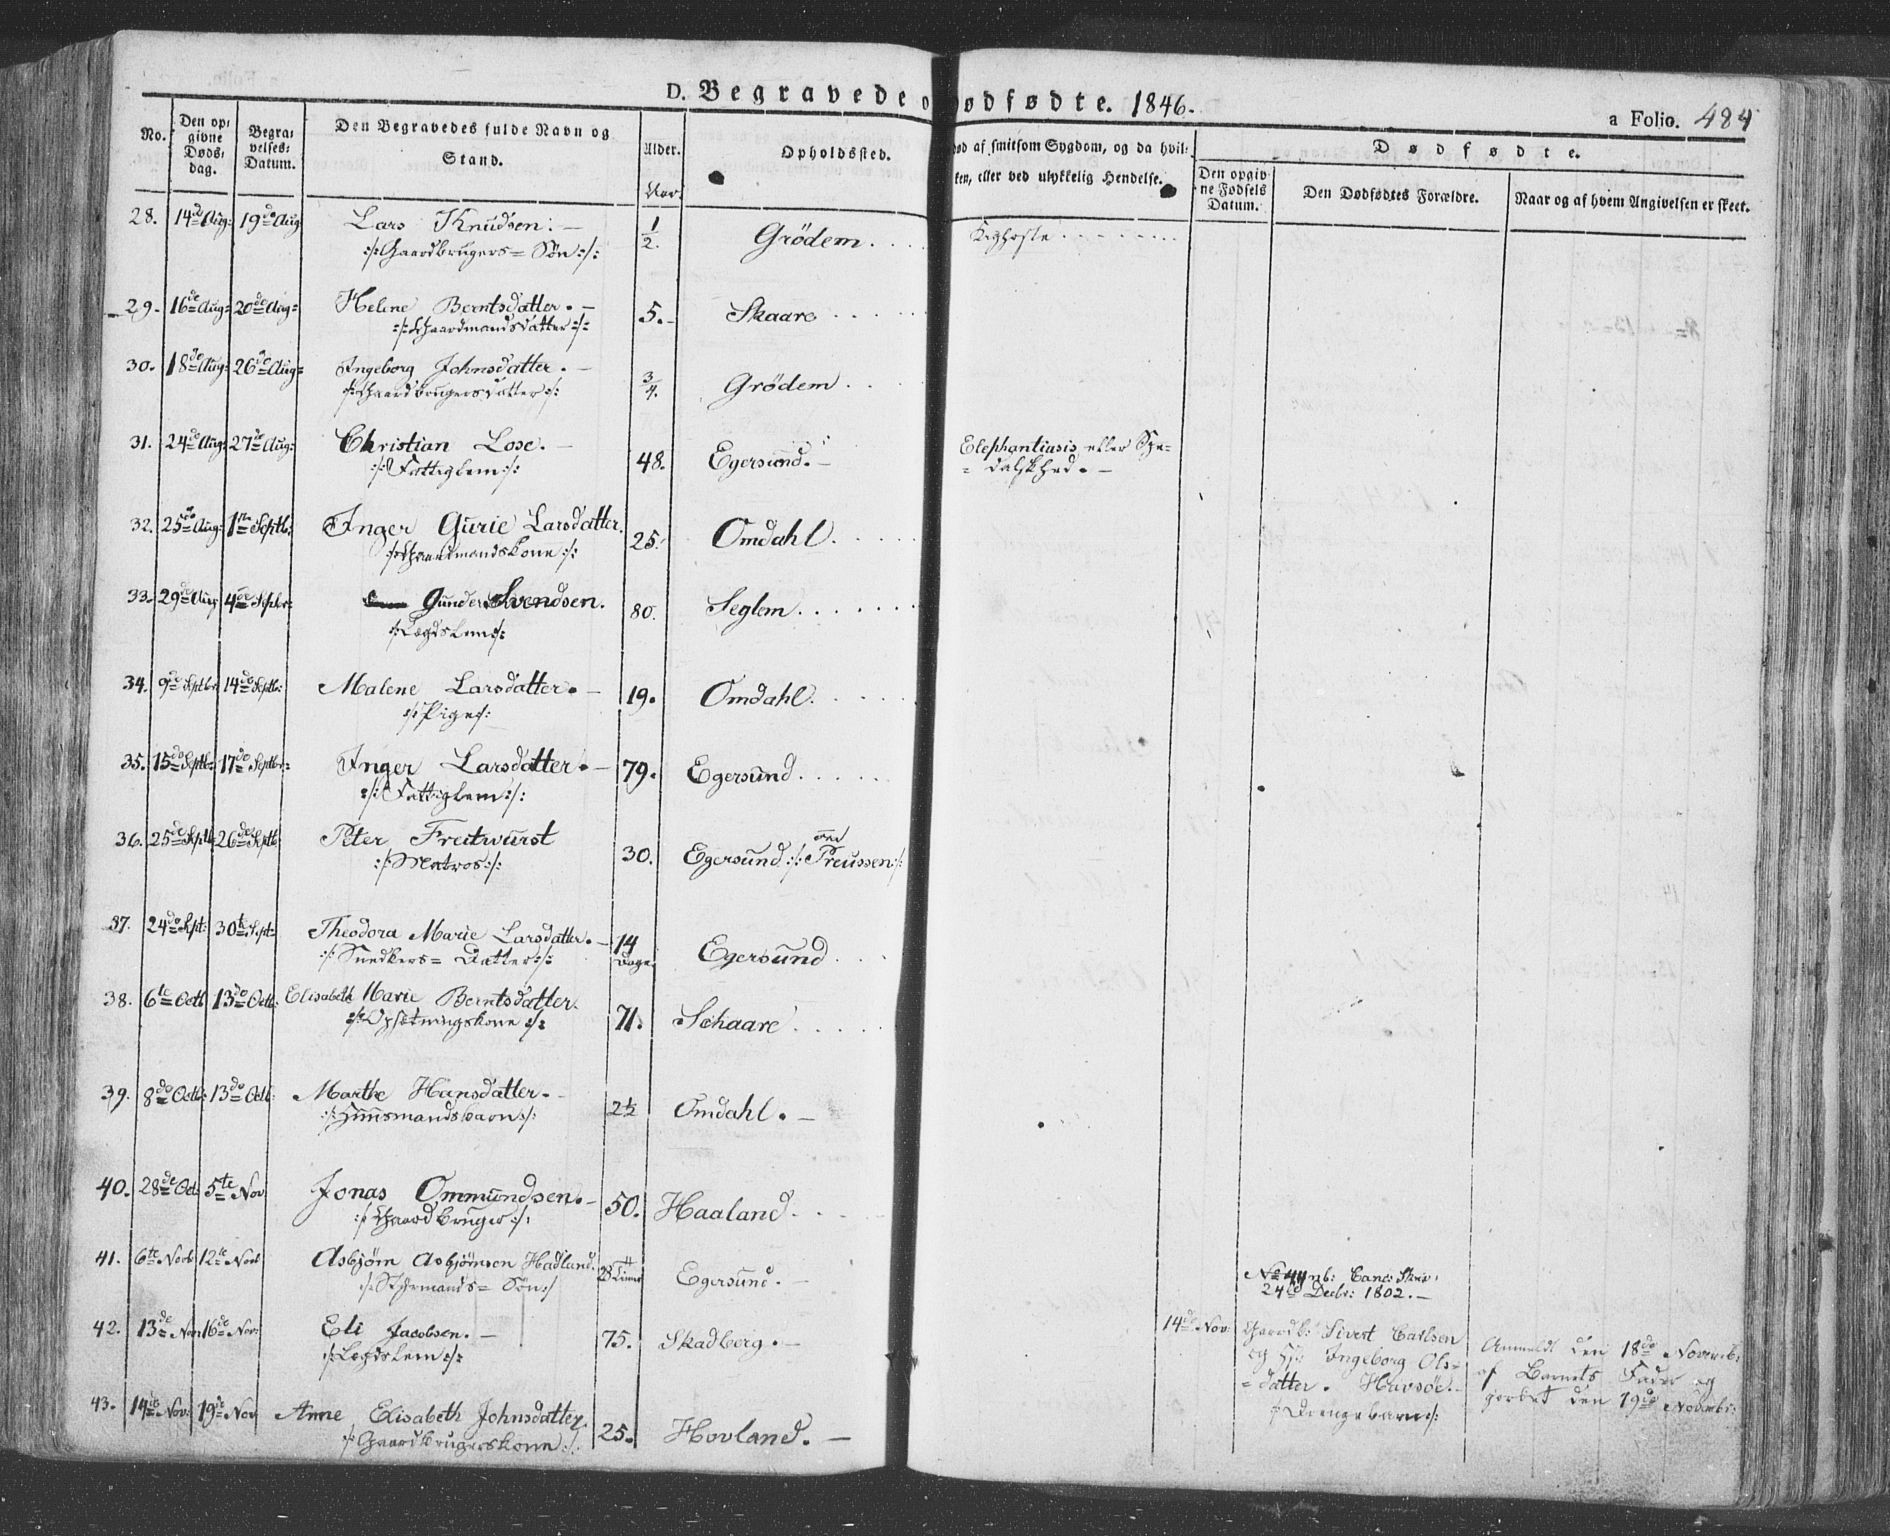 D. Begravede o dødfødte. 1846.
a Folio. 484
No.
Den op-
givne
Døds-
dag.
Begra-
velses-
Datum.
Den Begravedes fulde Navn og
Stand.
Alder.
Aar.
Opholdssted.
Død af smitsom Sygdom, og da hvil-
ken, eller ved ulykkelig Hendelse.
Dødfødte.
Den opgiv-
ne Fødsels
Datum.
Den Dødfødtes Forældre.
Naar og af hvem Angivelsen er skeet.
28. 14de Aug: 19de Aug: Lars Knudsen. — 1/2. Grödem . . . . Kighoste . . . . . . . .
:/: Gaardbrugers= Søn :/:
29. 16de Aug= 20de Aug= Helene Berntsdatter. — 5. Skaare . . . . .
:/: Gaardmandsdatter :/:
30. 18de Aug= 26de Aug= Ingeborg Johnsdatter. — 3/4. Grödem . . .
:/: Gaardbrugersdatter :/:
31. 24de Aug: 27de Aug: Christian Lose. — 48. Egersund. — Elephantiasis eller Spe-
:/: Fattiglem :/: = dalskhed. —
32. 25de Aug: 1ste Septbr: Inger Gurie Larsdatter. 25. Omdahl . . . . .
:/: Gaardmandskone :/:
33. 29de Aug 4de Septbr: Gunder Svendsen. 80. Seglem . . . . . . .
:/: Lægdslem :/:
34. 9de Septbr 14de Septbr: Malene Larsdatter. — 19. Omdahl . . . . .
:/: Pige :/:
35. 15de Septbr: 17de Septbr: Inger Larsdatter. — 79. Egersund . . . . .
:/: Fattiglem :/:
36. 25de Septb 26de Septb Peter Freitwurst 30. Egersund :/: Preussen :/:
:/: Matros :/:
37. 24de Sept: 30te Sept= Theodora Marie Larsdatter. — 14 Dage. Egersund . . .
:/: Snedkers= Datter :/:
38. 6te Octb 13de Octb: Elisabeth Marie Berntsdatter. 71. Schaare . . . . .
:/: Opsetningskone :/:
39. 8de Octb: 13de Octb: Marthe Hansdatter. — 2½ Omdahl. —
:/: Huusmandsbarn :/:
40. 28de Oct 5te Nov Jonas Ommundsen. — 50. Haaland . . . .
:/: Gaardbruger :/:
41. 6te Novb 12te Novb Asbjörn Asbjörnsen Hadland. Egersund. —
:/: Styrmands= Søn :/
No 44 nb: Canc: Skriv:
24de Decbr: 1802. —
42. 13de Nov 16de Nov: Eli Jacobsen. — 75. Skadberg. —
:/: Legdslem :/:
14de Nov: Gaardb: Sivert Carlsen
og H: Ingeborg Ols=
=datter. Havsöe. —
:/: Drengebarn :/:
Anmeldt den 18de Novemb:
af Barnets Fader og
jordet den 19de Novembr:
43. 14de Nov: 19de Nov Anne Elisabeth Johnsdatter. 25. Hovland. —
:/: Gaardbrugerskone :/: